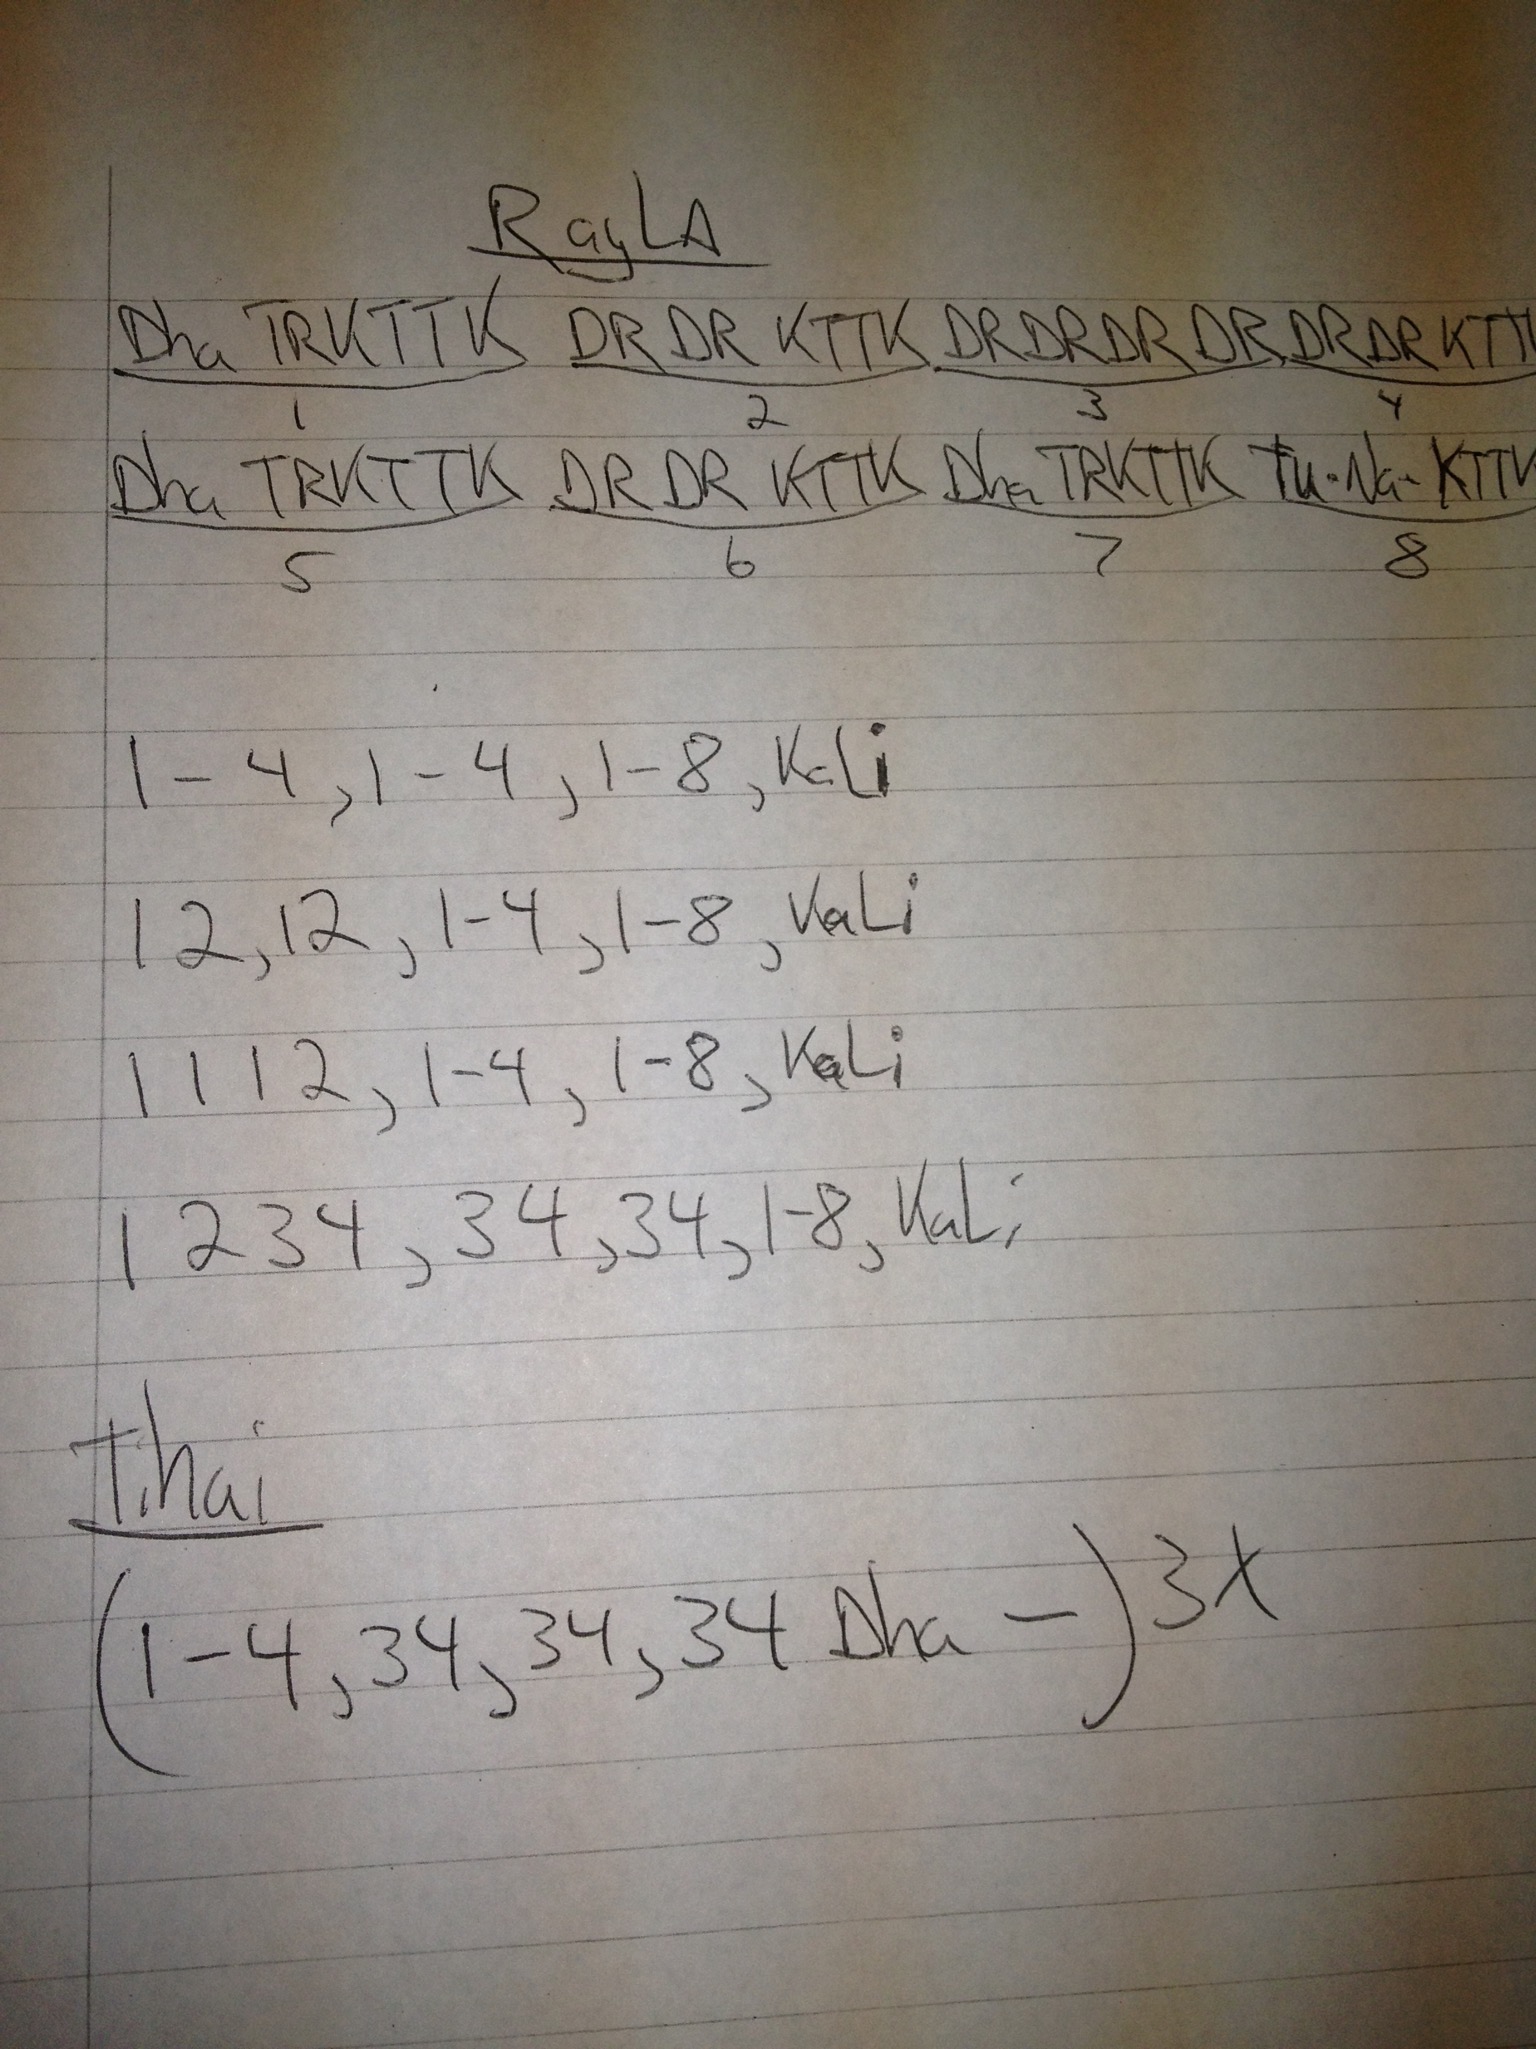 RayLA
Dha TRKTTK DRDR KTTK DRDRDRDR, DRDRKTTK
1 2 3 4
Dha TRKTTK DRDR KTTK Dha TRKTTK Tu-Na-KTTK
5 6 7 8
1-4, 1-4, 1-8, KaLi
12, 12, 1-4, 1-8, KaLi
1112, 1-4, 1-8, KaLi
1234, 34, 34, 1-8, KaLi
Tihai
(1-4, 34, 34, 34 Dha -) 3x